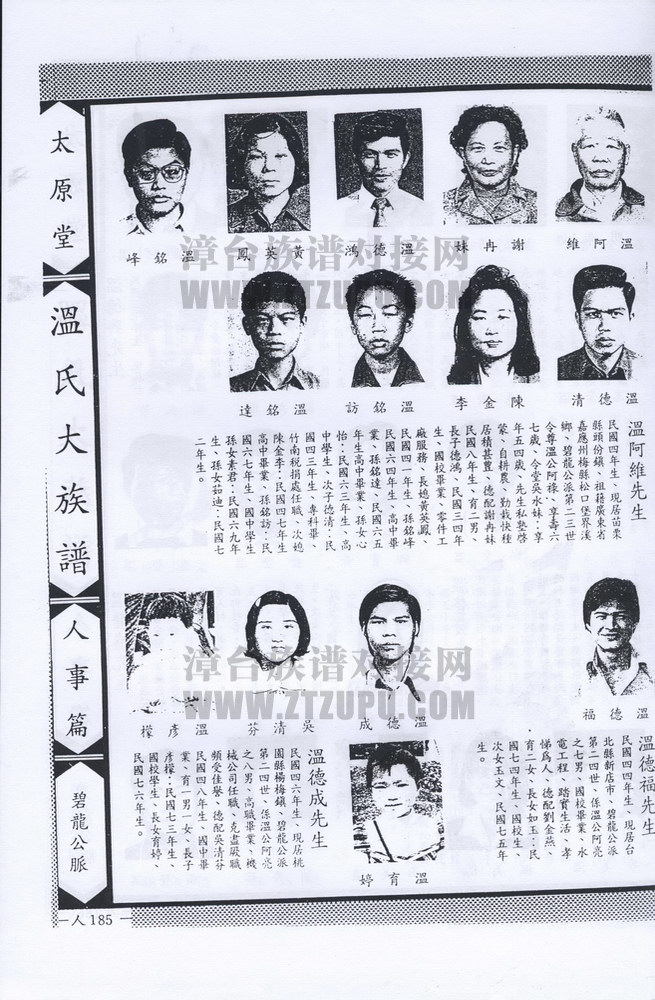 太原堂
溫氏大族譜
人事篇
碧龍公脈
人 185
峰銘溫
鳳英黃
鴻德溫
妹冉謝
維阿溫
達銘溫
訪銘溫
李金陳
清德溫
溫阿維先生
民國四年生、現居苗栗
縣頭份鎮、祖籍廣東省
嘉應州梅縣松口堡界溪
鄉、碧龍公派第二三世
令尊溫公阿祿、享壽六
七歲、令堂吳水妹：享
年五四歲、先生私塾啓
蒙、自耕農、勤栽快種
居積甚豐、德配謝冉妹
民國八年生、育二男、
長子德鴻、民國三四年
生、國校畢業、零件工
廠服務、長媳黃英鳳、
民國四一年生、孫銘峰
民國六四年生、高中畢
業、孫銘達、民國六五
年生高中畢業、孫女心
怡：民國六三年生、高
中學生、次子德清：民
國四三年生、專科畢、
竹南稅捐處任職、次媳
陳金李：民國四七年生
高中畢業、孫銘訪：民
國六七年生、國中學生
孫女素君：民國六九年
生、孫女茹迪：民國七
二年生。
檬彥溫
芬清吳
成德溫
福德溫
溫德福先生
民國四四年生、現居台
北縣新店市、碧龍公派
第二四世、係溫公阿亮
之七男、國校畢業、水
電工程、踏實生活、孝
悌爲人、德配劉金燕、
育二女、長女如玉：民
國七四年生、國校生、
次女玉文、民國七五年
生。
溫德成先生
民國四六年生、現居桃
園縣楊梅鎮、碧龍公派
第二四世、係溫公阿亮
之八男、高職畢業、機
械公司任職、克盡厥職
頻受佳譽、德配吳清芬
民國四八年生、國中畢
業、育一男一女、長子
彥檬：民國七三年生、
國校學生、長女育婷、
民國七六年生。
婷育溫
漳台族谱对接网
WWW.ZTZUPU.COM
漳台族谱对接网
WWW.ZTZUPU.COM